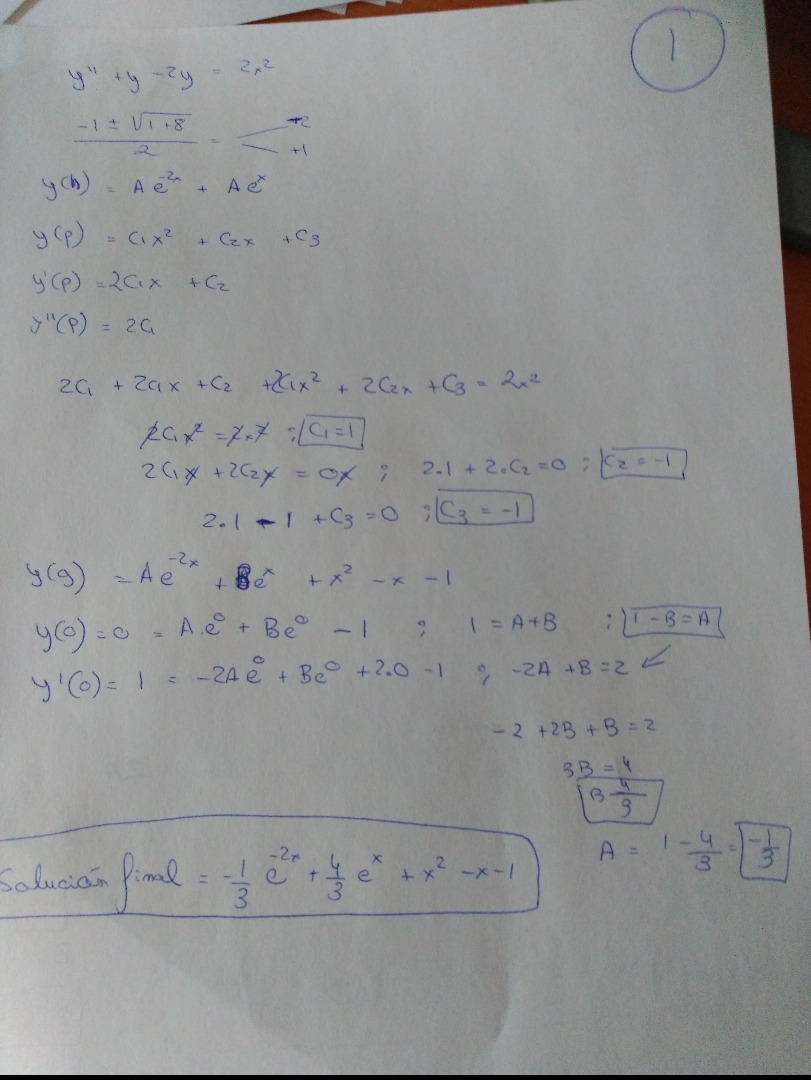 1
y'' + y - 2y = 2x²
(-1 ± √(1+8)) / 2 = -2
+1
y(h) = A e^-2x + A e^x
y(p) = C₁x² + C₂x + C₃
y'(p) = 2C₁x + C₂
y''(p) = 2C₁
2C₁ + 2C₁x + C₂ + 2C₁x² + 2C₂x + C₃ = 2x²
2C₁x² = 2x² ; C₁ = 1
2C₁x + 2C₂x = 0x ; 2·1 + 2·C₂ = 0 ; C₂ = -1
2·1 - 1 + C₃ = 0 ; C₃ = -1
y(g) = A e^-2x + B e^x + x² - x - 1
y(0) = 0 = A·e⁰ + Be⁰ - 1 ; 1 = A+B ; 1 - B = A
y'(0) = 1 = -2A e⁰ + Be⁰ + 2·0 - 1 ; -2A + B = 2 ↙
-2 + 2B + B = 2
3B = 4
B = 4/3
A = 1 - 4/3 = -1/3
Solución final = -1/3 e^-2x + 4/3 e^x + x² - x - 1